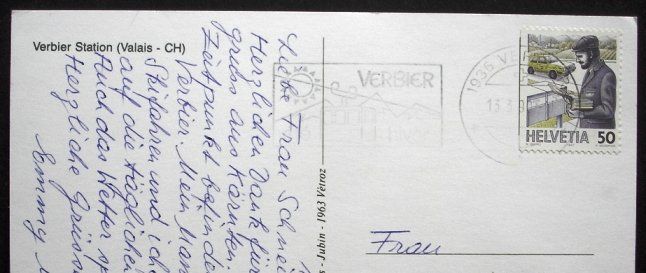 Verbier Station (Valais - CH)
Liebe Frau Schnei
Herzlichen Dank für
gruss aus Kärnten.
Zeitpunkt befinde
Verbier. Mein Man
Skifahren und ich
auf die täglichen
Auch das Wetter sp
Herzliche Grüsse
VERBIER
1936 VE
13.3.9
HELVETIA 50
- 1963 Vétroz
Frau